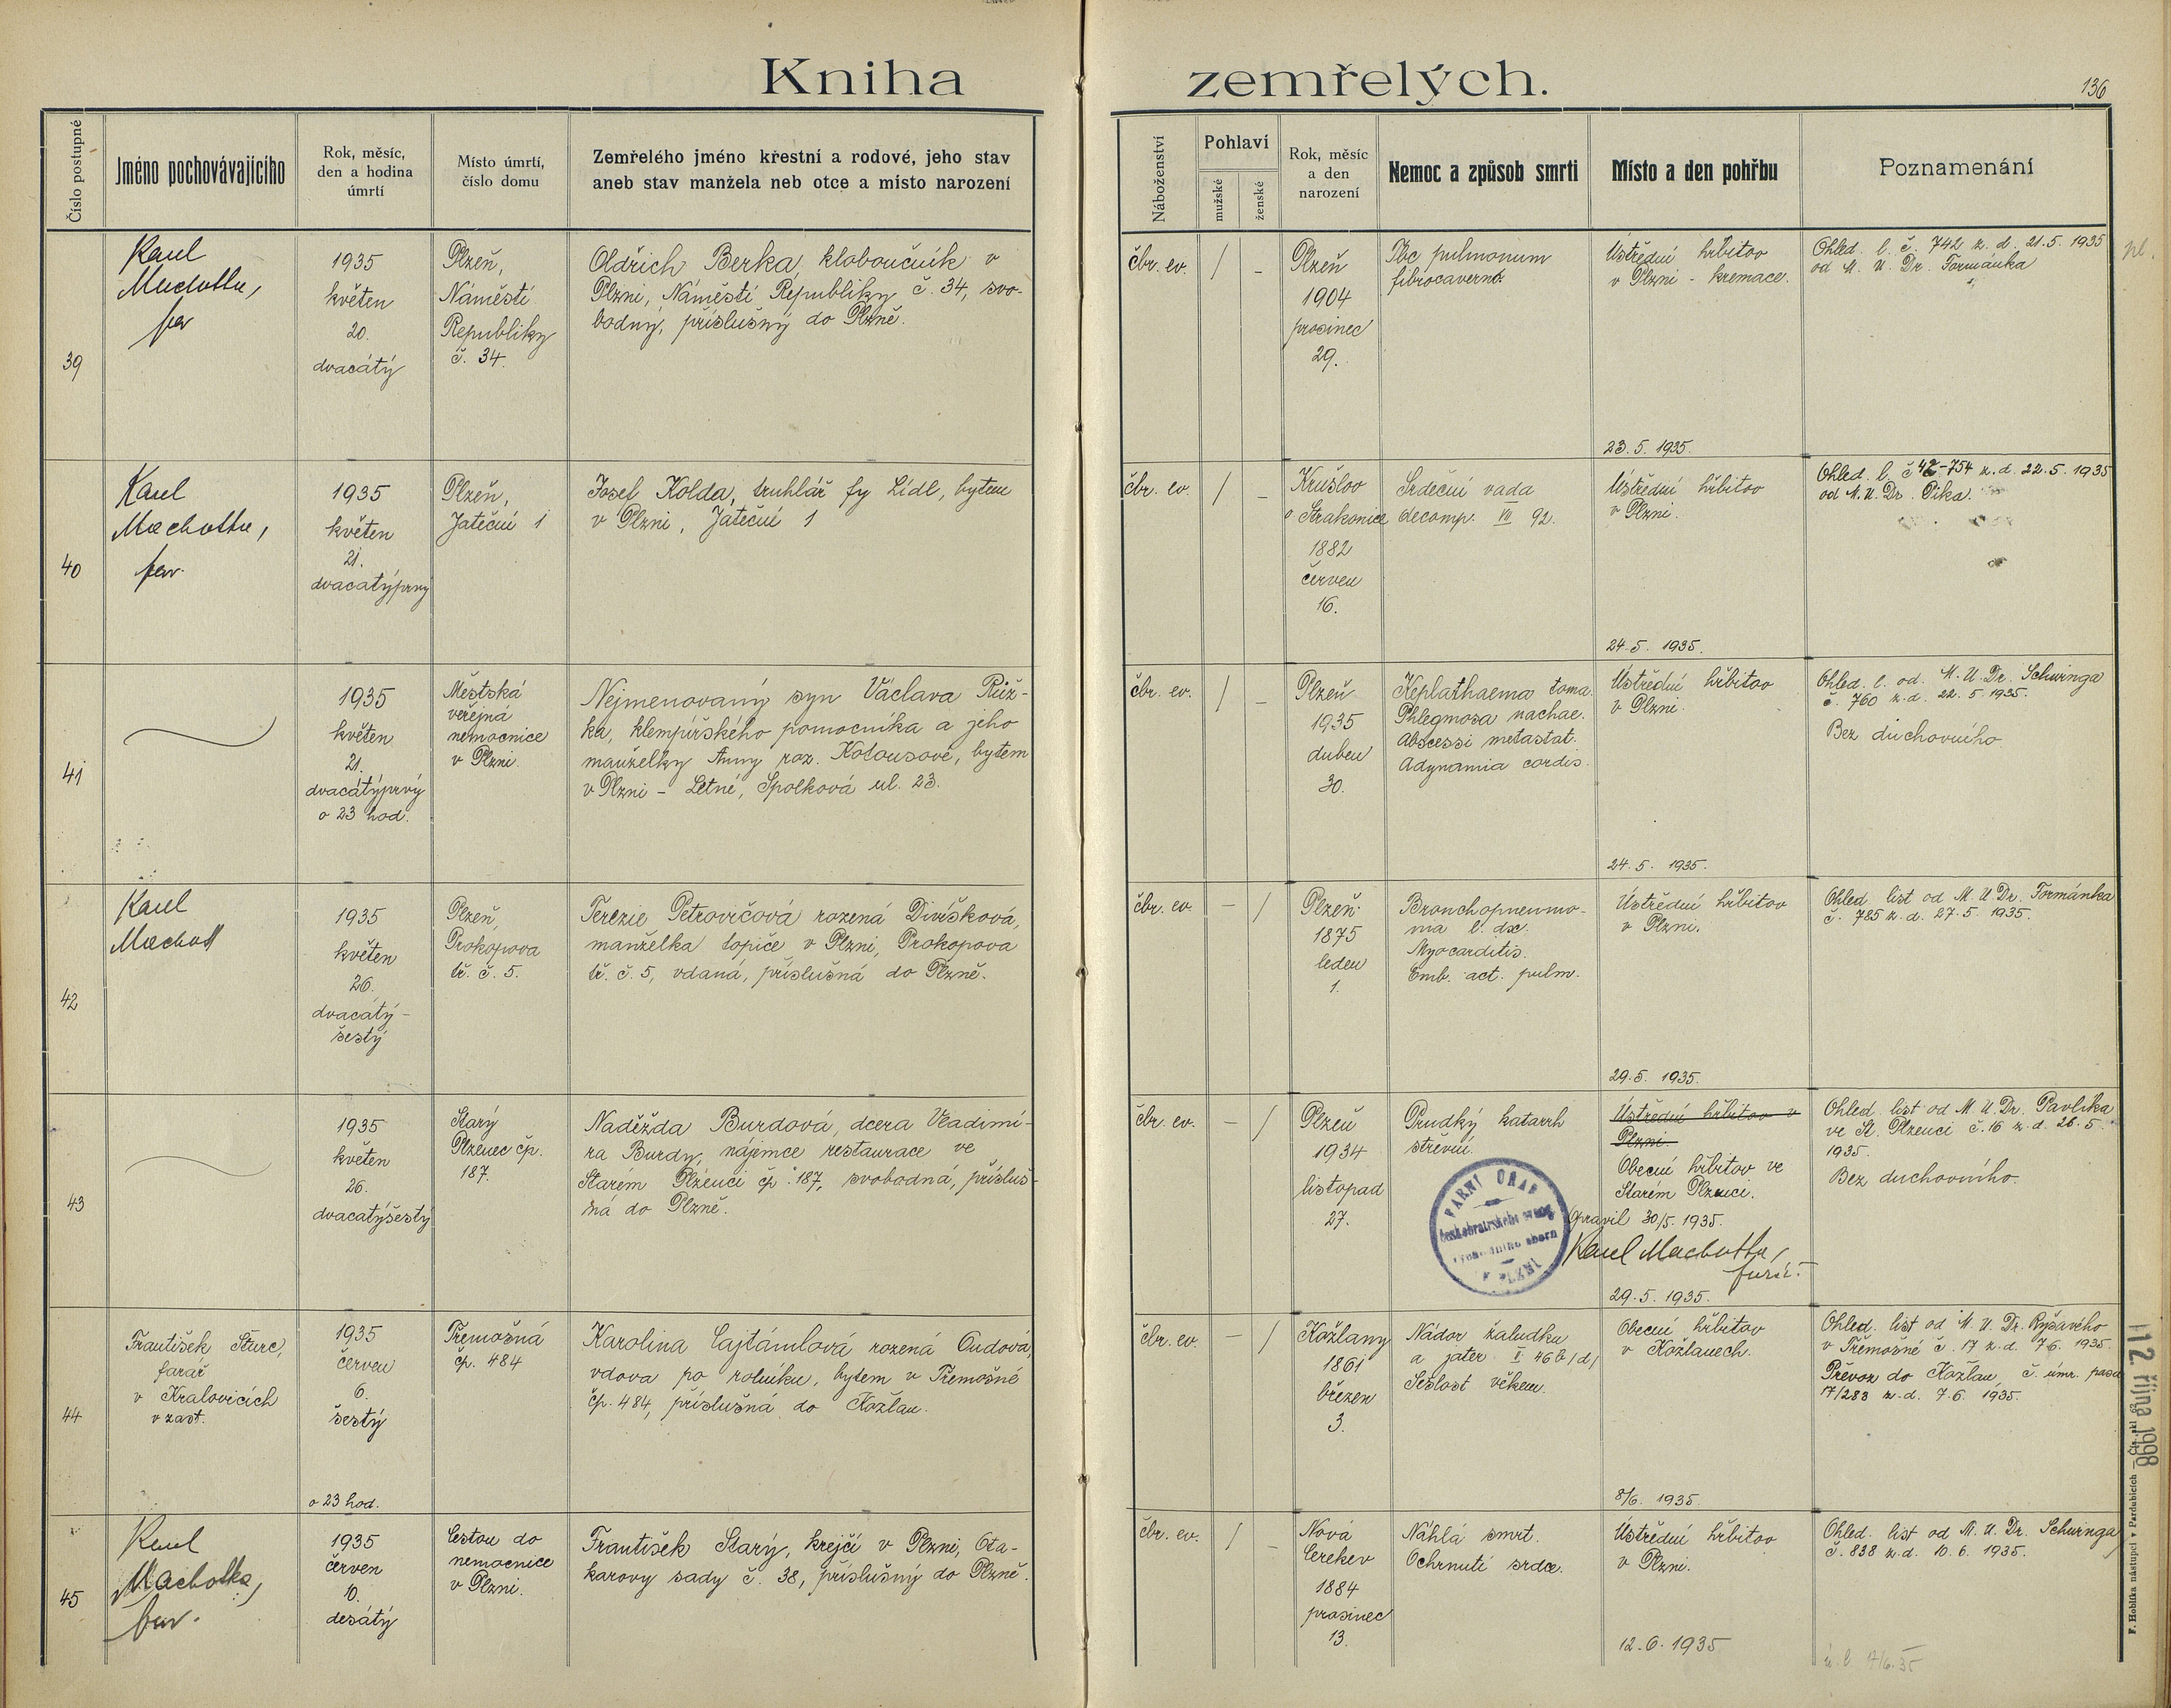 Kniha zemřelých.
136
Číslo postupné
Jméno pochovávajícího
Rok, měsíc,
den a hodina
úmrtí
Místo úmrtí,
číslo domu
Zemřelého jméno křestní a rodové, jeho stav
aneb stav manžela neb otce a místo narození
Náboženství
Pohlaví
mužské
ženské
Rok, měsíc
a den
narození
Nemoc a způsob smrti
Místo a den pohřbu
Poznamenání
39
Karel
Machotka,
far
1935
květen
20.
dvacátý
Plzeň,
Náměstí
Republiky
č. 34.
Oldřich Berka, kloboučník v
Plzni, Náměstí Republiky č. 34, svo-
bodný, příslušný do Plzně.
čbr. ev.
/
-
Plzeň
1904
prosinec
29.
Tbc pulmonum
fibrocavernos.
Ústřední hřbitov
v Plzni - kremace.
23. 5. 1935.
Ohled. l. č. 742 z. d. 21. 5. 1935
od M. U. Dr. Formánka
pl.
40
Karel
Machotka,
far.
1935
květen
21.
dvacátýprvý
Plzeň,
Jateční 1
Josef Kolda, truhlář fy Lídl, bytem
v Plzni, Jateční 1
čbr. ev.
/
-
Krušlov
o. Strakonice
1882
červen
16.
Srdeční vada
decomp. VII 92.
Ústřední hřbitov
v Plzni.
24. 5. 1935.
Ohled. l. č 42-754 z. d. 22. 5. 1935
od M. U. Dr. Pika.
41
1935
květen
21.
dvacátýprvý
o 23 hod.
Městská
veřejná
nemocnice
v Plzni.
Nejmenovaný syn Václava Růž-
ka, klempířského pomocníka a jeho
manželky Anny roz. Kolousové, bytem
v Plzni - Letné, Spolková ul. 23.
čbr. ev.
/
-
Plzeň
1935
duben
30.
Keplathaema toma.
Phlegmosa nachae.
Abscessi metastat.
Adynamia cordis.
Ústřední hřbitov
v Plzni.
24. 5. 1935.
Ohled. l. od. M. U. Dr. Schwinga
č. 760 z. d. 22. 5. 1935.
Bez duchovního.
42
Karel
Machot
1935
květen
26.
dvacátý-
šestý
Plzeň,
Prokopova
tř. č. 5.
Terezie Petrovičová rozená Divíšková,
manželka topiče v Plzni, Prokopova
tř. č. 5, vdaná, příslušná do Plzně.
čbr. ev.
-
/
Plzeň
1875
leden
1.
Bronchopneumo-
nia l. dx.
Myocarditis.
Emb. act. pulm.
Ústřední hřbitov
v Plzni.
29. 5. 1935.
Ohled. list od M. U. Dr. Formánka
č. 785 z. d. 27. 5. 1935.
43
1935
květen
26.
dvacátýšestý
Starý
Plzenec čp.
187.
Naděžda Burdová, dcera Vladimí-
ra Burdy, nájemce restaurace ve
Starém Plzenci čp. 187, svobodná, přísluš-
ná do Plzně.
čbr. ev.
-
/
Plzeň
1934
listopad
27.
Prudký katarrh
střevní.
FARNÍ ÚŘAD
Ústřední hřbitov v
Plzni.
Obecní hřbitov ve
Starém Plzenci.
Opravil 30/5. 1935.
Karel Machotka,
farář.
29. 5. 1935.
Ohled. list od M. U. Dr. Pavlíka
ve St. Plzenci č. 16 z. d. 26. 5.
1935.
Bez duchovního.
44
František Šturc,
farář
v Kralovicích
v zast.
1935
červen
6.
šestý
o 23 hod.
Třemošná
čp. 484
Karolina Cajtámlová rozená Oudová,
vdova po rolníku, bytem v Třemošné
čp. 484, příslušná do Kožlan.
čbr. ev.
-
/
Kožlany
1861
březen
3.
Nádor žaludku
a jater. I. 46 b/d/
Sešlost věkem.
Obecní hřbitov
v Kožlanech.
8/6. 1935.
Ohled. list od M. U. Dr. Ryšavého
v Třemošné č. 17 z. d. 7. 6. 1935.
Převoz do Kožlan, č. úmr. pasu
17/283 z. d. 7. 6. 1935.
12. října 1998
45
Karel
Machotka,
far.
1935
červen
10.
desátý
Cestou do
nemocnice
v Plzni.
František Starý, krejčí v Plzni, Ota-
karovy sady č. 38, příslušný do Plzně.
čbr. ev.
/
-
Nová
Cerekev
1884
prosinec
13.
Náhlá smrt.
Ochrnutí srdce.
Ústřední hřbitov
v Plzni.
12. 6. 1935
Ohled. list od M. U. Dr. Schwinga
č. 838 z. d. 10. 6. 1935.
F. Hoblíka nástupci v Pardubicích